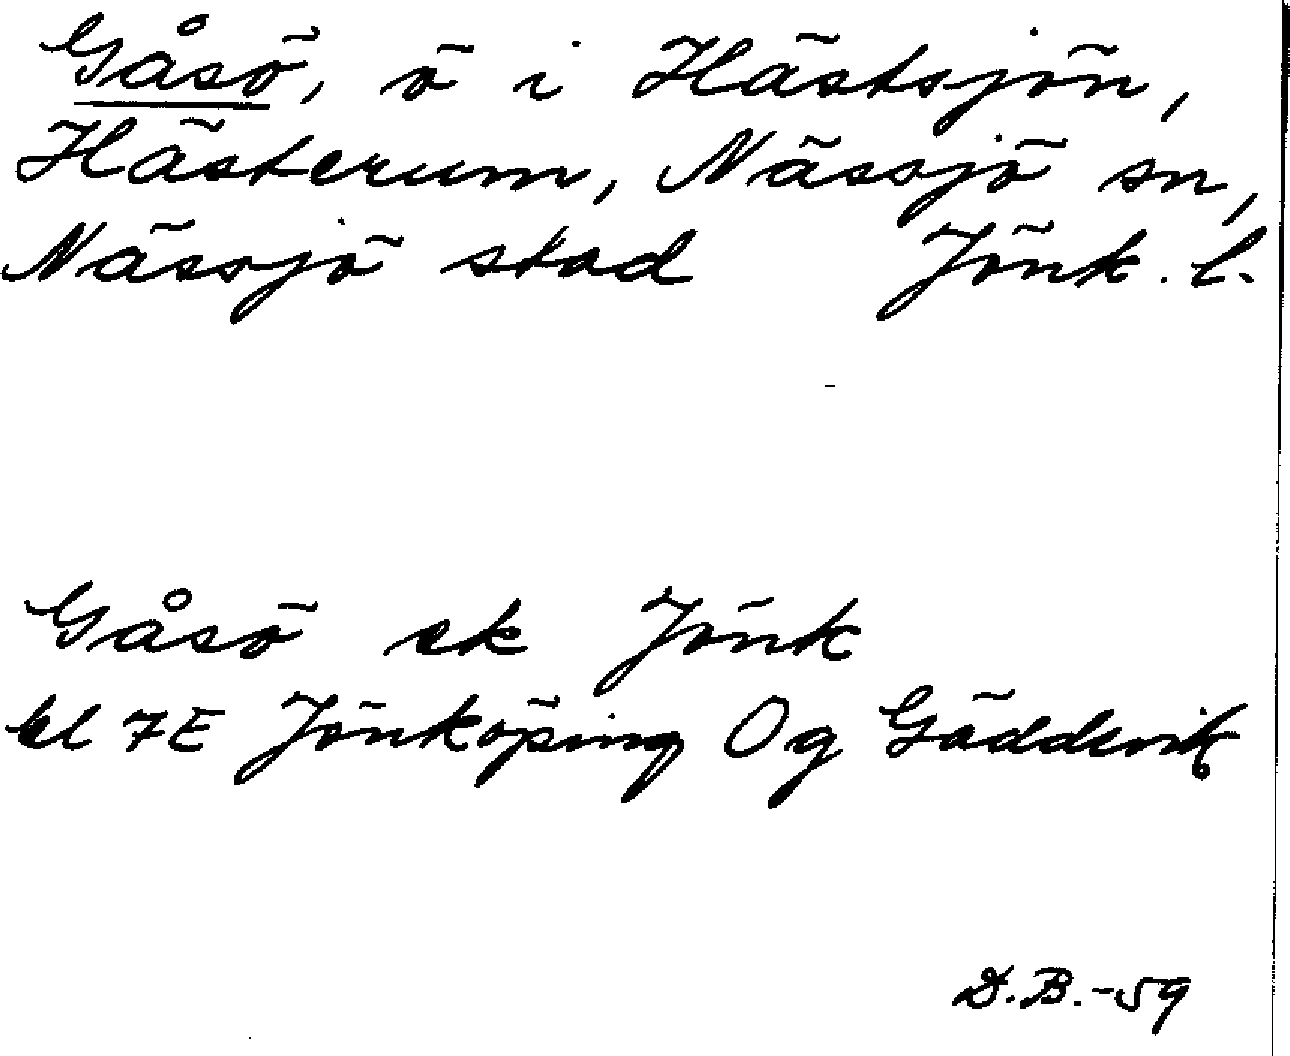 Gåsö, ö i Hästsjön,
Hästerum, Nässjö sn,
Nässjö stad Jönk. l.
Gåsö ek Jönk
bl 7E Jönköping Og Gäddevik
D.B.-59